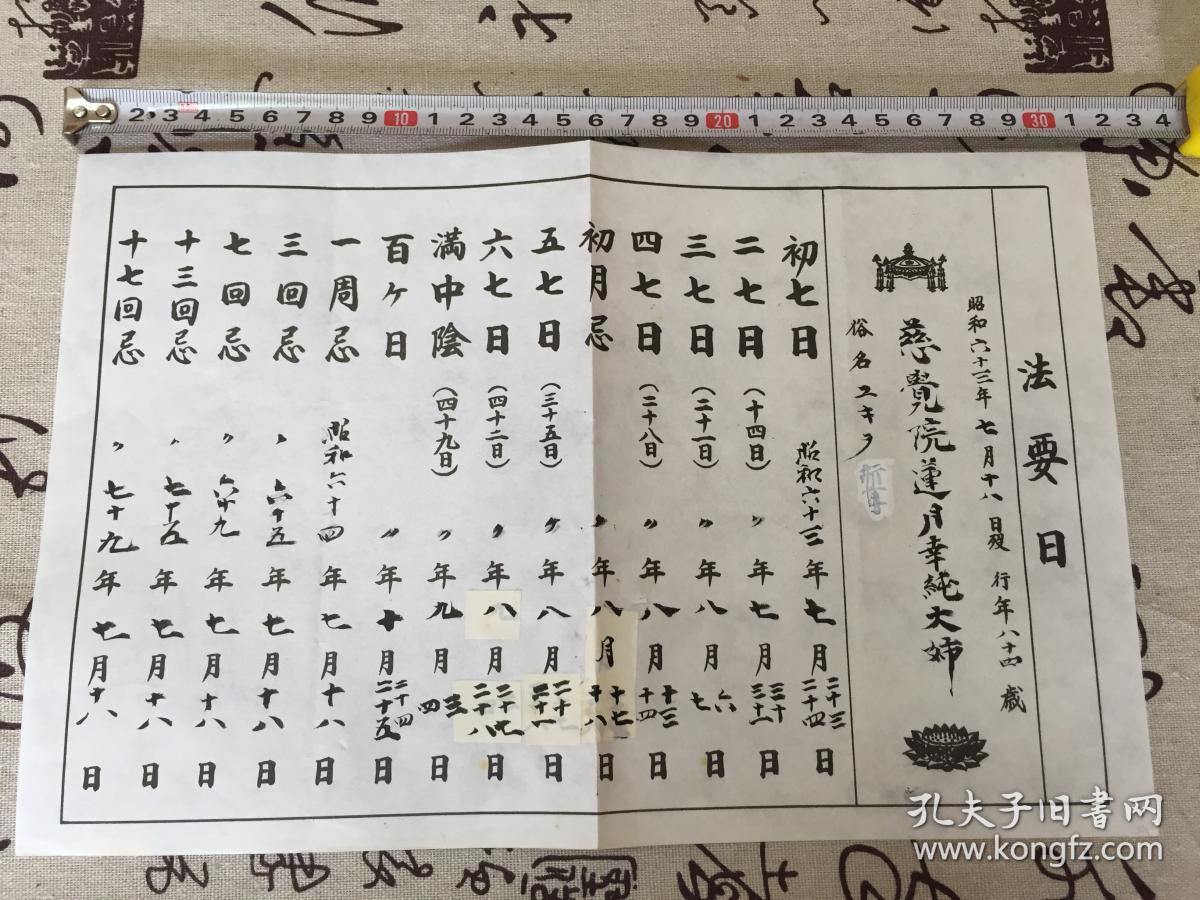 2 3 4 5 6 7 8 9 10 1 2 3 4 5 6 7 8 9 20 1 2 3 4 5 6 7 8 9 30 1 2 3 4
法要日
昭和六十三年七月十八日歿 行年八十四歳
慈覺院蓮月幸純大姉
俗名 ユキヲ
初七日 昭和六十三年七月二十三 二十四日
二七日(十四日) 〃年七月三十 三十一日
三七日(二十一日) 〃年八月六 七日
四七日(二十八日) 〃年八月十三 十四日
初月忌 〃年八月十七 十八日
五七日(三十五日) 〃年八月二十 二十一日
六七日(四十二日) 〃年八月二十七 二十八日
満中陰(四十九日) 〃年九月三 四日
百ヶ日 〃年十月二十四 二十五日
一周忌 昭和六十四年七月十八日
三回忌 〃六十五年七月十八日
七回忌 〃六十九年七月十八日
十三回忌 〃七十五年七月十八日
十七回忌 〃七十九年七月十八日
孔夫子旧书网
www.kongfz.com